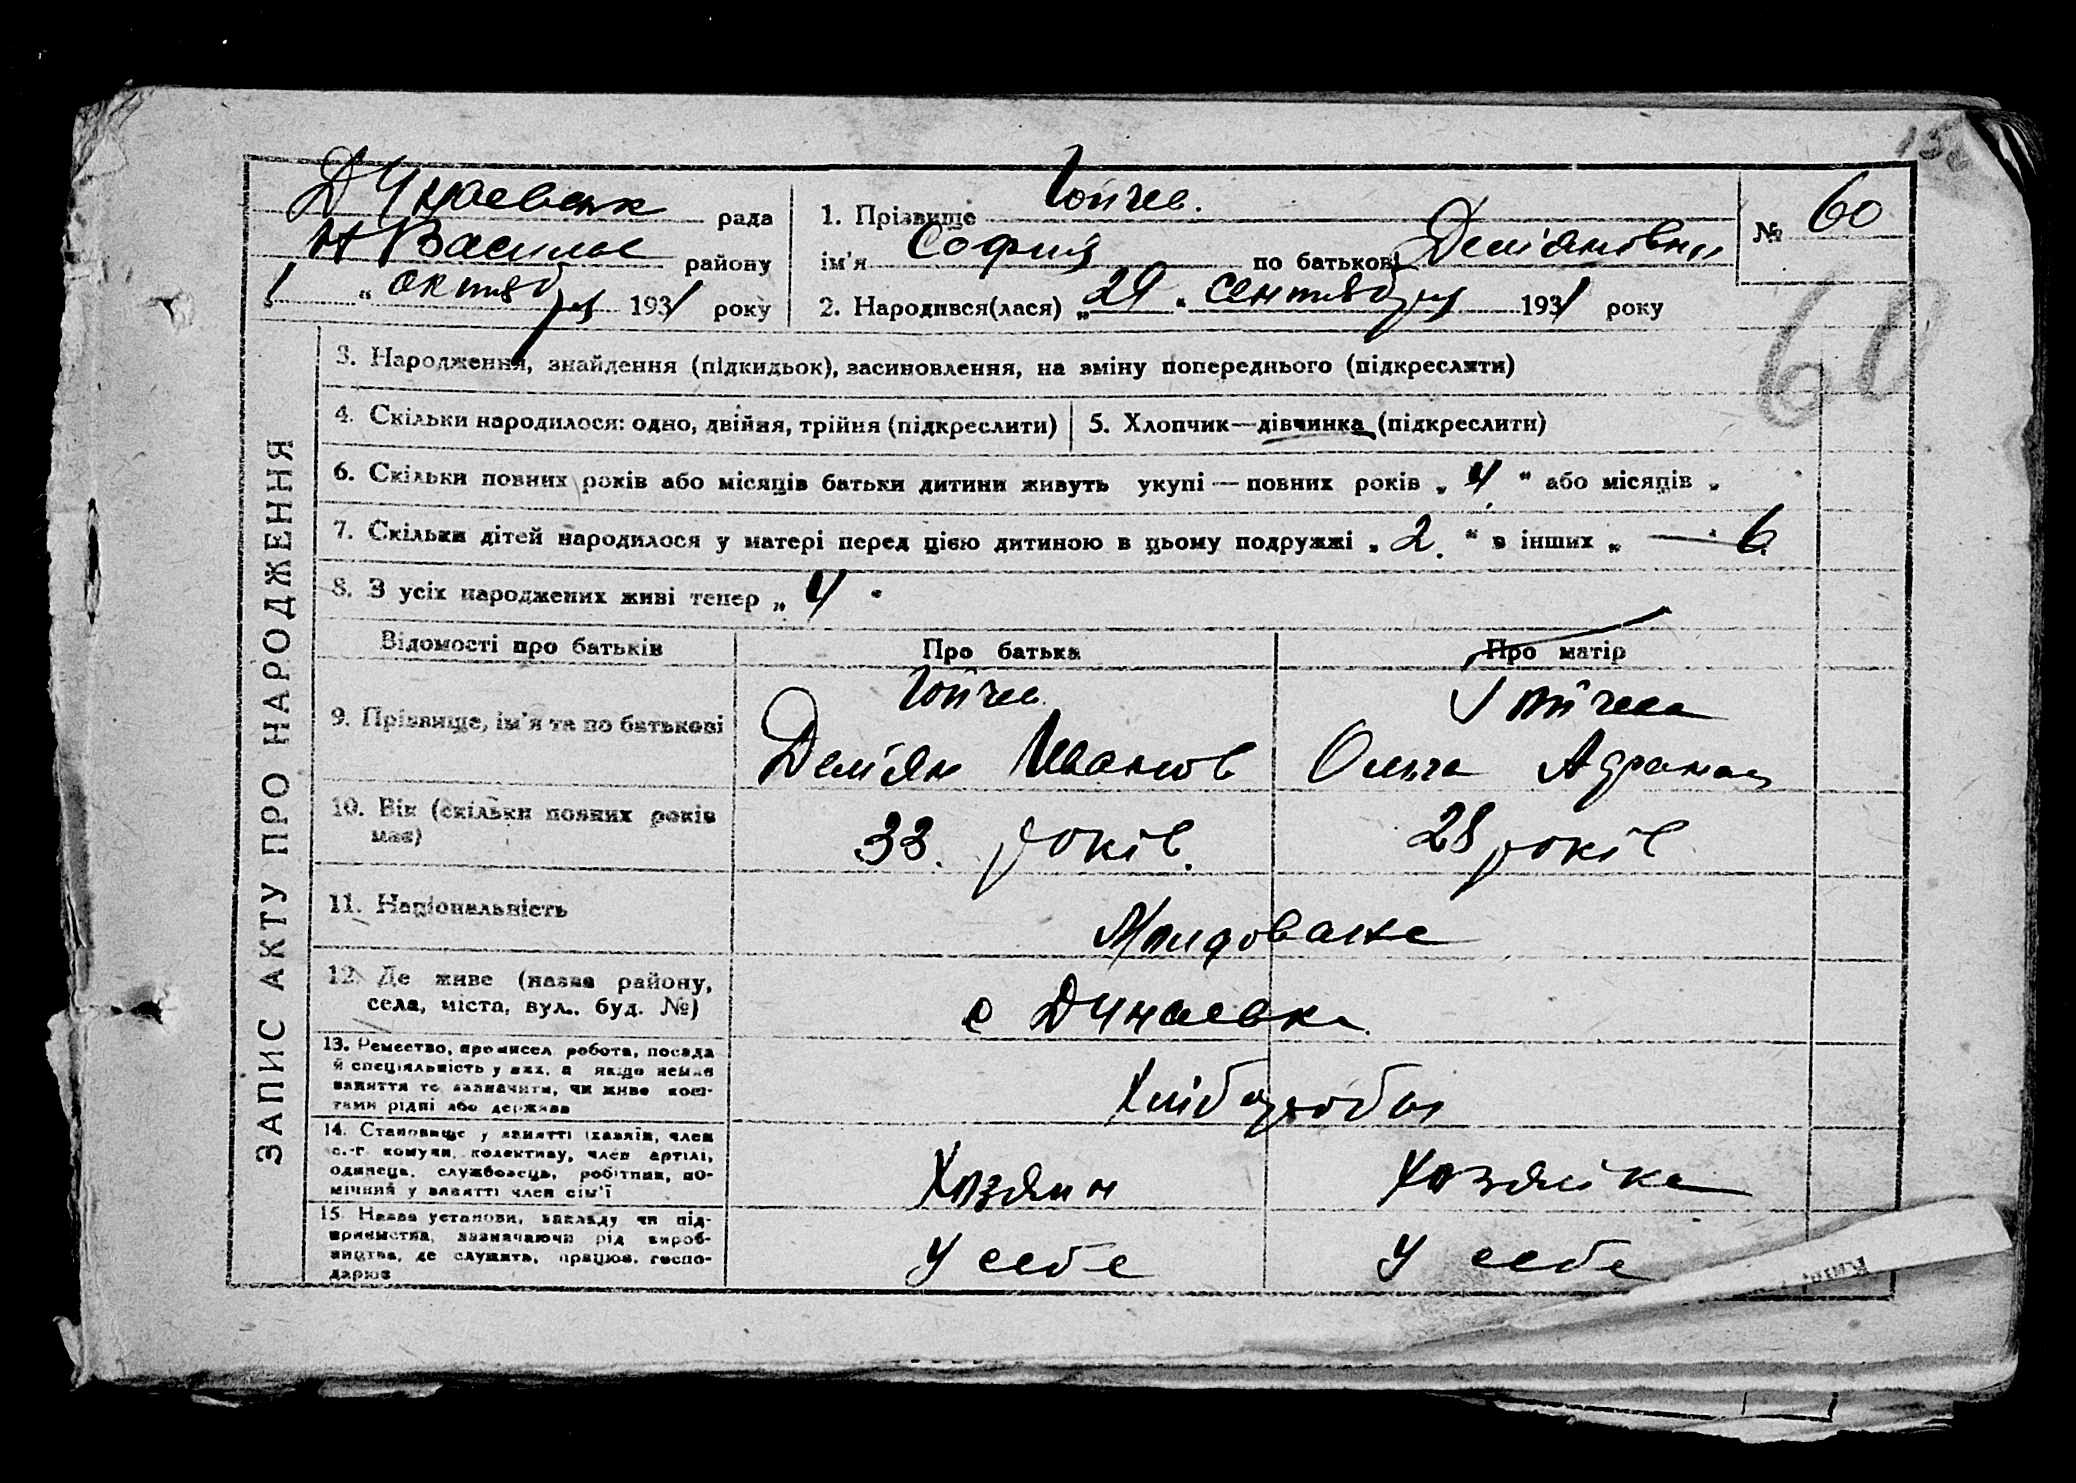 Дунаевск рада
Н Василье району
1 " октября 1931 року
1. Прізвище Гойчев.
ім'я София по батькові Демʼяновна
2. Народився(лася) „29" сентября 1931 року
№ 60
60
3. Народження, знайдення (підкидьок), засиновлення, на зміну попереднього (підкреслити)
4. Скільки народилося: одно, двійня, трійня (підкреслити)
5. Хлопчик—дівчинка (підкреслити)
6. Скільки повних років або місяців батьки дитини живуть укупі — повних років „ 4 " або місяців „
7. Скільки дітей народилося у матері перед цією дитиною в цьому подружжі „ 2. " в інших „ — " 6
8. З усіх народжених живі тепер „ 4 "
Відомості про батьків
Про батька
Про матір
9. Прізвище, ім'я та по батькові
Гойчев
Демʼян Иванов
Гойчева
Ольга
10. Вік (скільки повних років має)
33. років.
28 років
11. Національність
Молдоване
12. Де живе (назва району,
села, міста, вул., буд. №)
с Дунаевка
13. Ремество, промисел, робота, посада
й спеціяльність у них, а якщо немає
заняття то зазначити, чи живе кош-
тами рідні або держава
Хліборобы
14. Становище у занятті (хазяїн, член
с.-г. комуни, колективу, член артілі,
одинець, службовець, робітник, по-
мічний у занятті член сім'ї
Хозяин
Хозяйка
15. Назва установи, закладу чи під-
приємства, зазначаючи рід вироб-
ництва, де служить, працює, госпо-
дарює
у себе
у себе
ЗАПИС АКТУ ПРО НАРОДЖЕННЯ